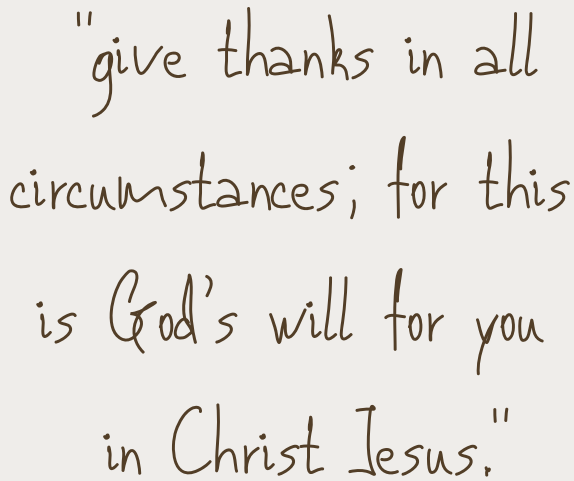 "give thanks in all
circumstances; for this
is God's will for you
in Christ Jesus."